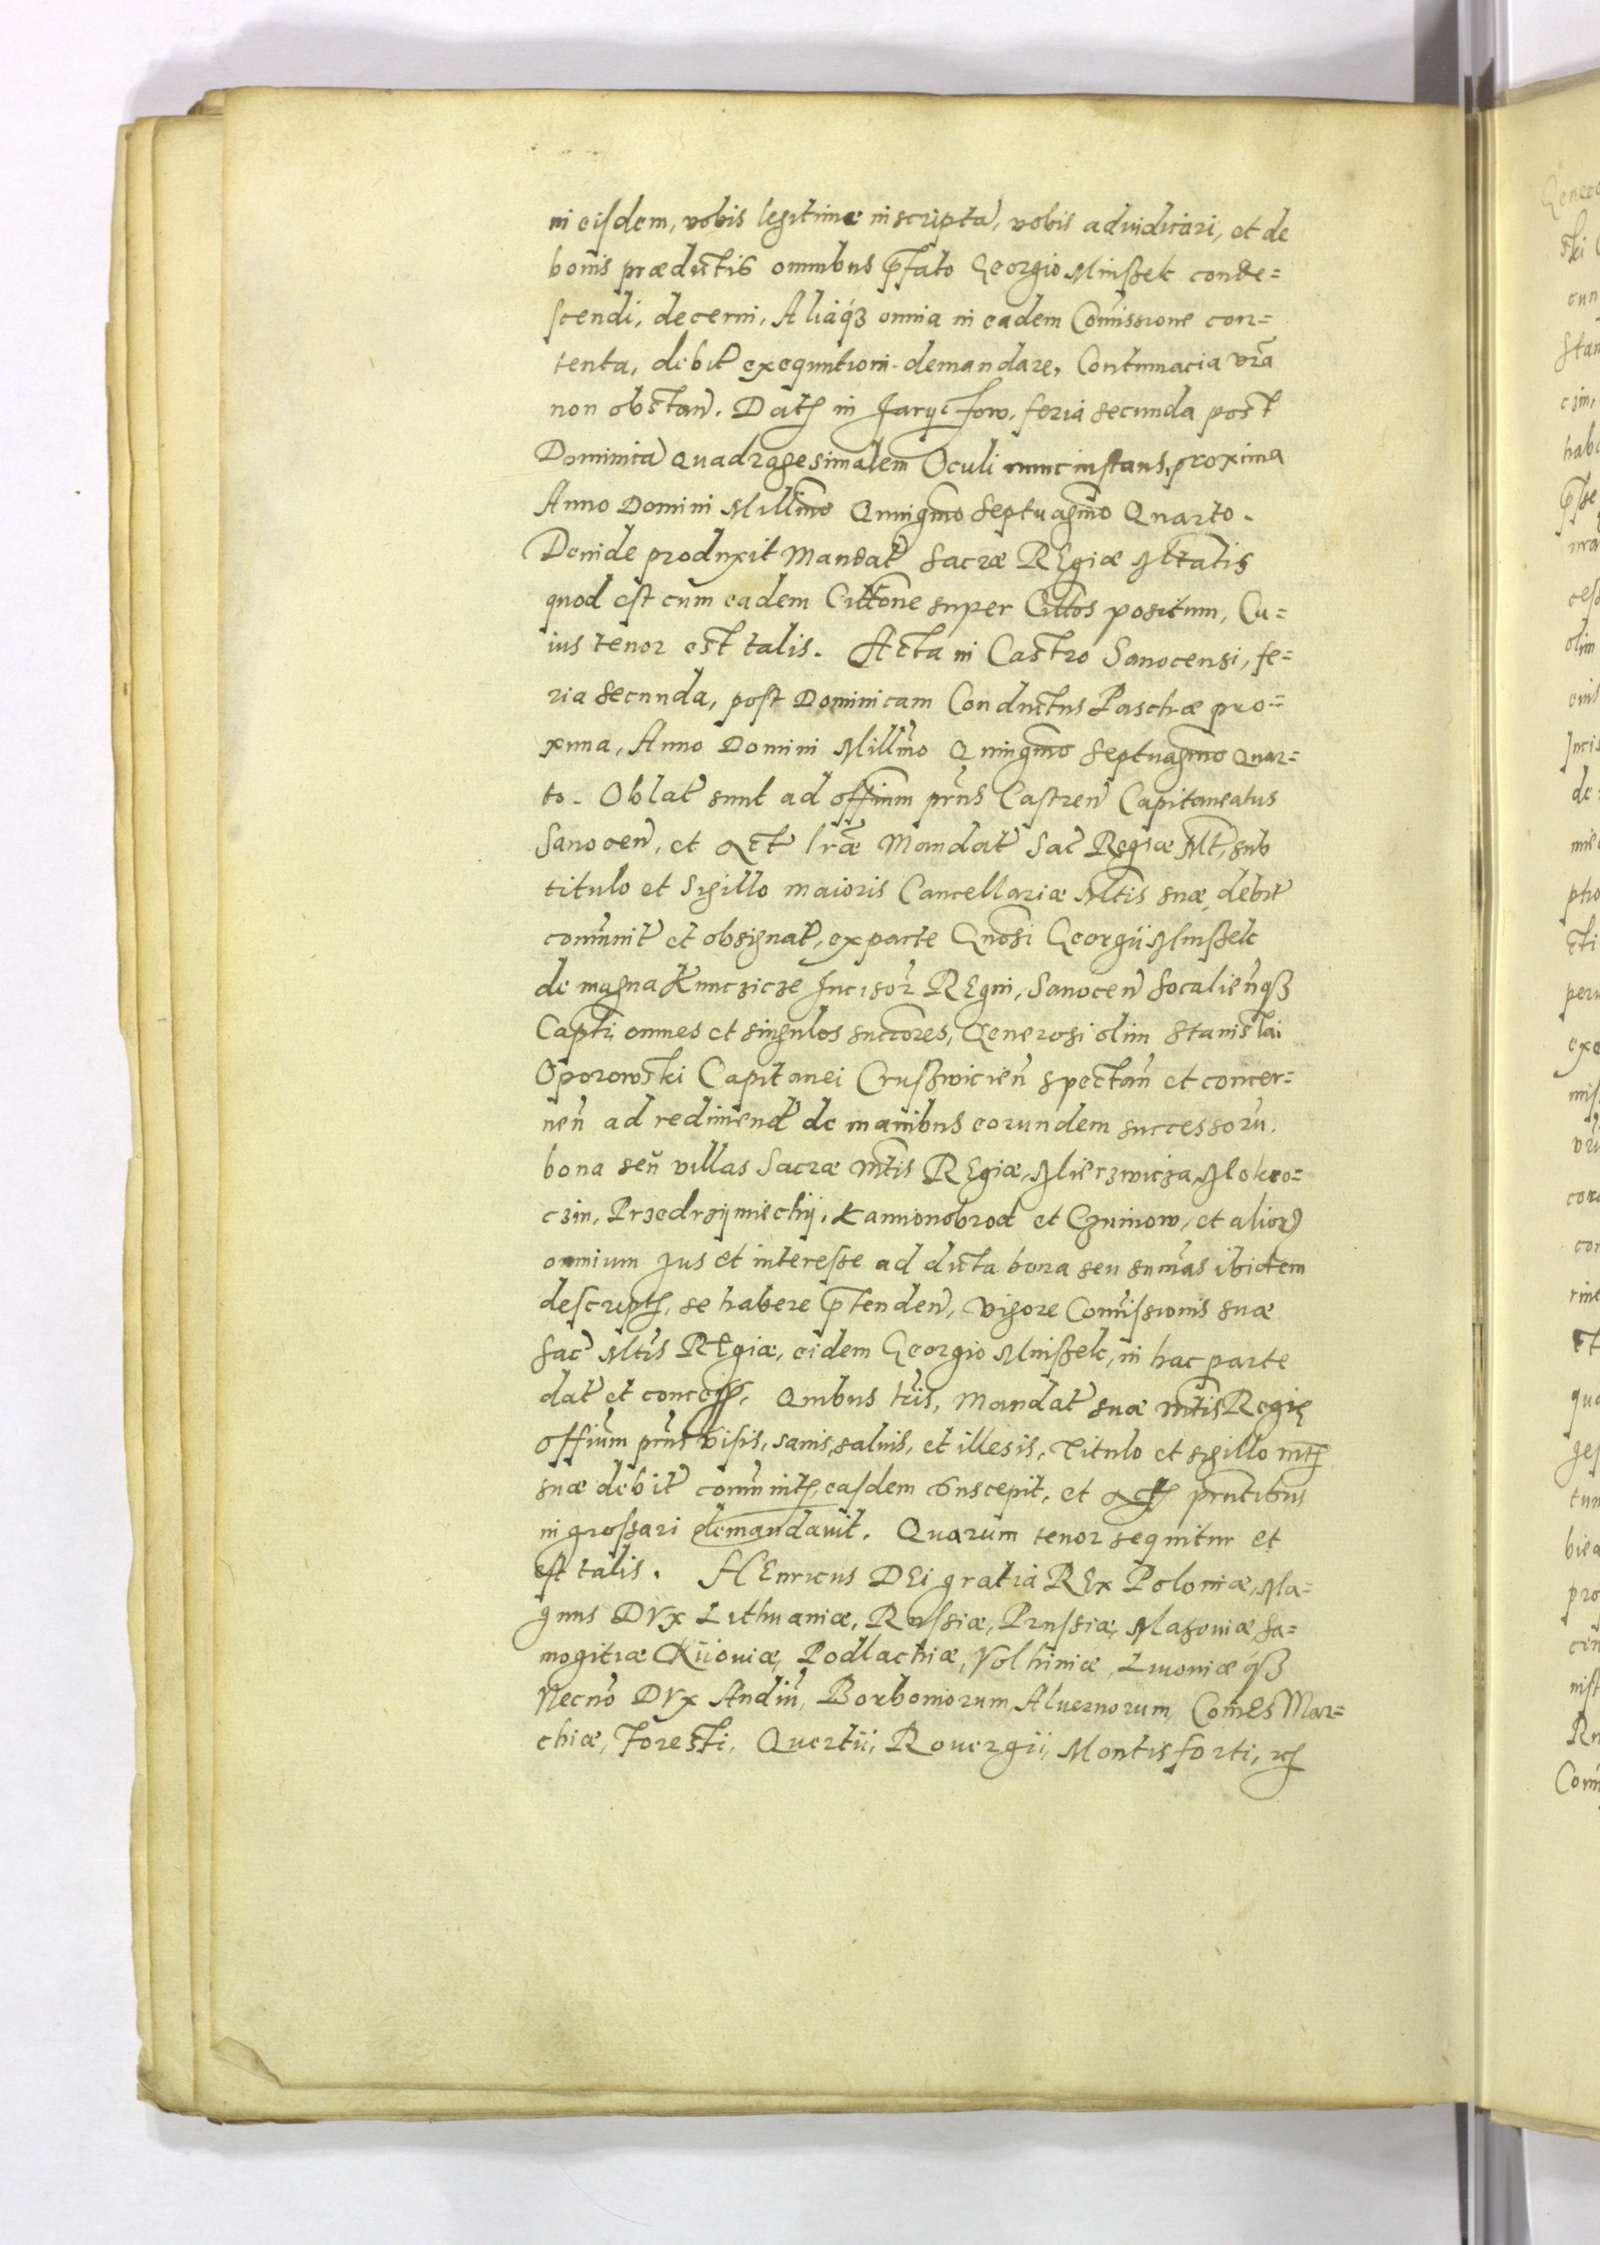 in eisdem, vobis legitimæ inscripta, vobis adiudicari, et de
bonis prædictis omnibus p̃fato Georgio Mnißek conde=
scendi, decerni, Aliaq́ʒ omnia in eadem Com̃issione con=
tenta, debit̃ exequutioni demandare, Contumacia vr̃a
non obstan̄. Datȝ in Jaryczow, feria secunda post
Dominicã Quadragesimalem Oculi nunc instans, proxima
Anno Domini Millm̃o Quingm̃o Septuagm̃o Quarto.
Deinde produxit Mandat̃ Sacræ REgiæ Mt̃atis
quod est cum eadem Citt̃one super Citt̃os positum, Cu=
ius tenor est talis. Acta in Castro Sanocensi, fe=
ria secunda, post Dominicam Conductus Paschæ pro=
xima, Anno Domini Millm̃o Quingm̃o Septuagm̃o Quar=
to. Oblat̃ sunt ad offium pr̃ns Castren̄ Capitaneatus
Sanocen̄, et Act̃ lr̃æ Mandat̃ Sac̃ Regiæ Mt̃, sub
titulo et Sigillo maioris Cancellariæ Mt̃is suæ, debit̃
com̃unit̃ et obsignat̃, ex parte Gnõsi Georgii Mnißek
de magna Kunczicze Incisor̃ REgni, Sanocen̄ Socalien̄qʒ
Capt̃i omnes et singulos succ̃ores, Generosi olim Stanislai
Oporowski Capitanei Crußwicien̄ spectan̄ et concer=
nen̄ ad redimend̃ de manibus eorundem successorũ.
bona seu villas Sacræ Mt̃is REgiæ, Mierzwicza, Mokro=
czin, Przedrzymiechy, Kamionobrod et Czuniow, et alior̃
omnium jus et interesse ad dicta bona seu sum̃as ibidem
descriptȝ, se habere p̃tenden̄, vigore Com̃issionis suæ
Sac̃ Mt̃is REgiæ, eidem Georgio Mnißek, in hac parte
dat̃ et concess̃. Quibus lr̃is, Mandat̃ suæ Mt̃is Regię
offium pr̃ns visis, sanis, salvis, et illesis, Titulo et sigillo Mtȝ
suæ debit̃ com̃unitȝ, easdem suscepit, et Actȝ pr̃ntibus
ingrossari demandavit. Quarum tenor sequitur et
est talis. HEnricus DEi gratia REx Poloniæ, Ma=
gnus DVx Lithuaniæ, Russiæ, Prussiæ, Masoviæ, Sa=
mogitiæ Kiioviæ, Podlachiæ, Volhiniæ, Livoniæ q́ʒ
Necnõ DVx Andiũ, Borboniorum, Alvernorum, ComEs Mar=
chiæ, Foresti, Quertii, Rouergii, Montisforti, etȝ